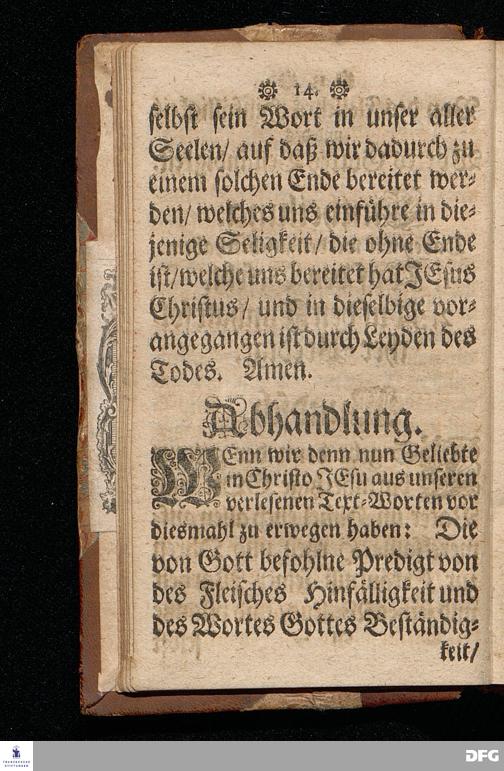 14.
selbst sein Wort in unser aller
Seelen/ auf daß wir dadurch zu
einem solchen Ende bereitet wer-
den/ welches uns einführe in die-
jenige Seligkeit/ die ohne Ende
ist/ welche uns bereitet hat JEsus
Christus/ und in dieselbige vor-
angegangen ist durch Leyden des
Todes. Amen.
Abhandlung.
WEnn wir denn nun Geliebte
in Christo JEsu aus unseren
verlesenen Text-Worten vor
diesmahl zu erwegen haben: Die
von Gott befohlne Predigt von
des Fleisches Hinfälligkeit und
des Wortes Gottes Beständig-
keit/
FRANCKESCHE STIFTUNGEN
DFG